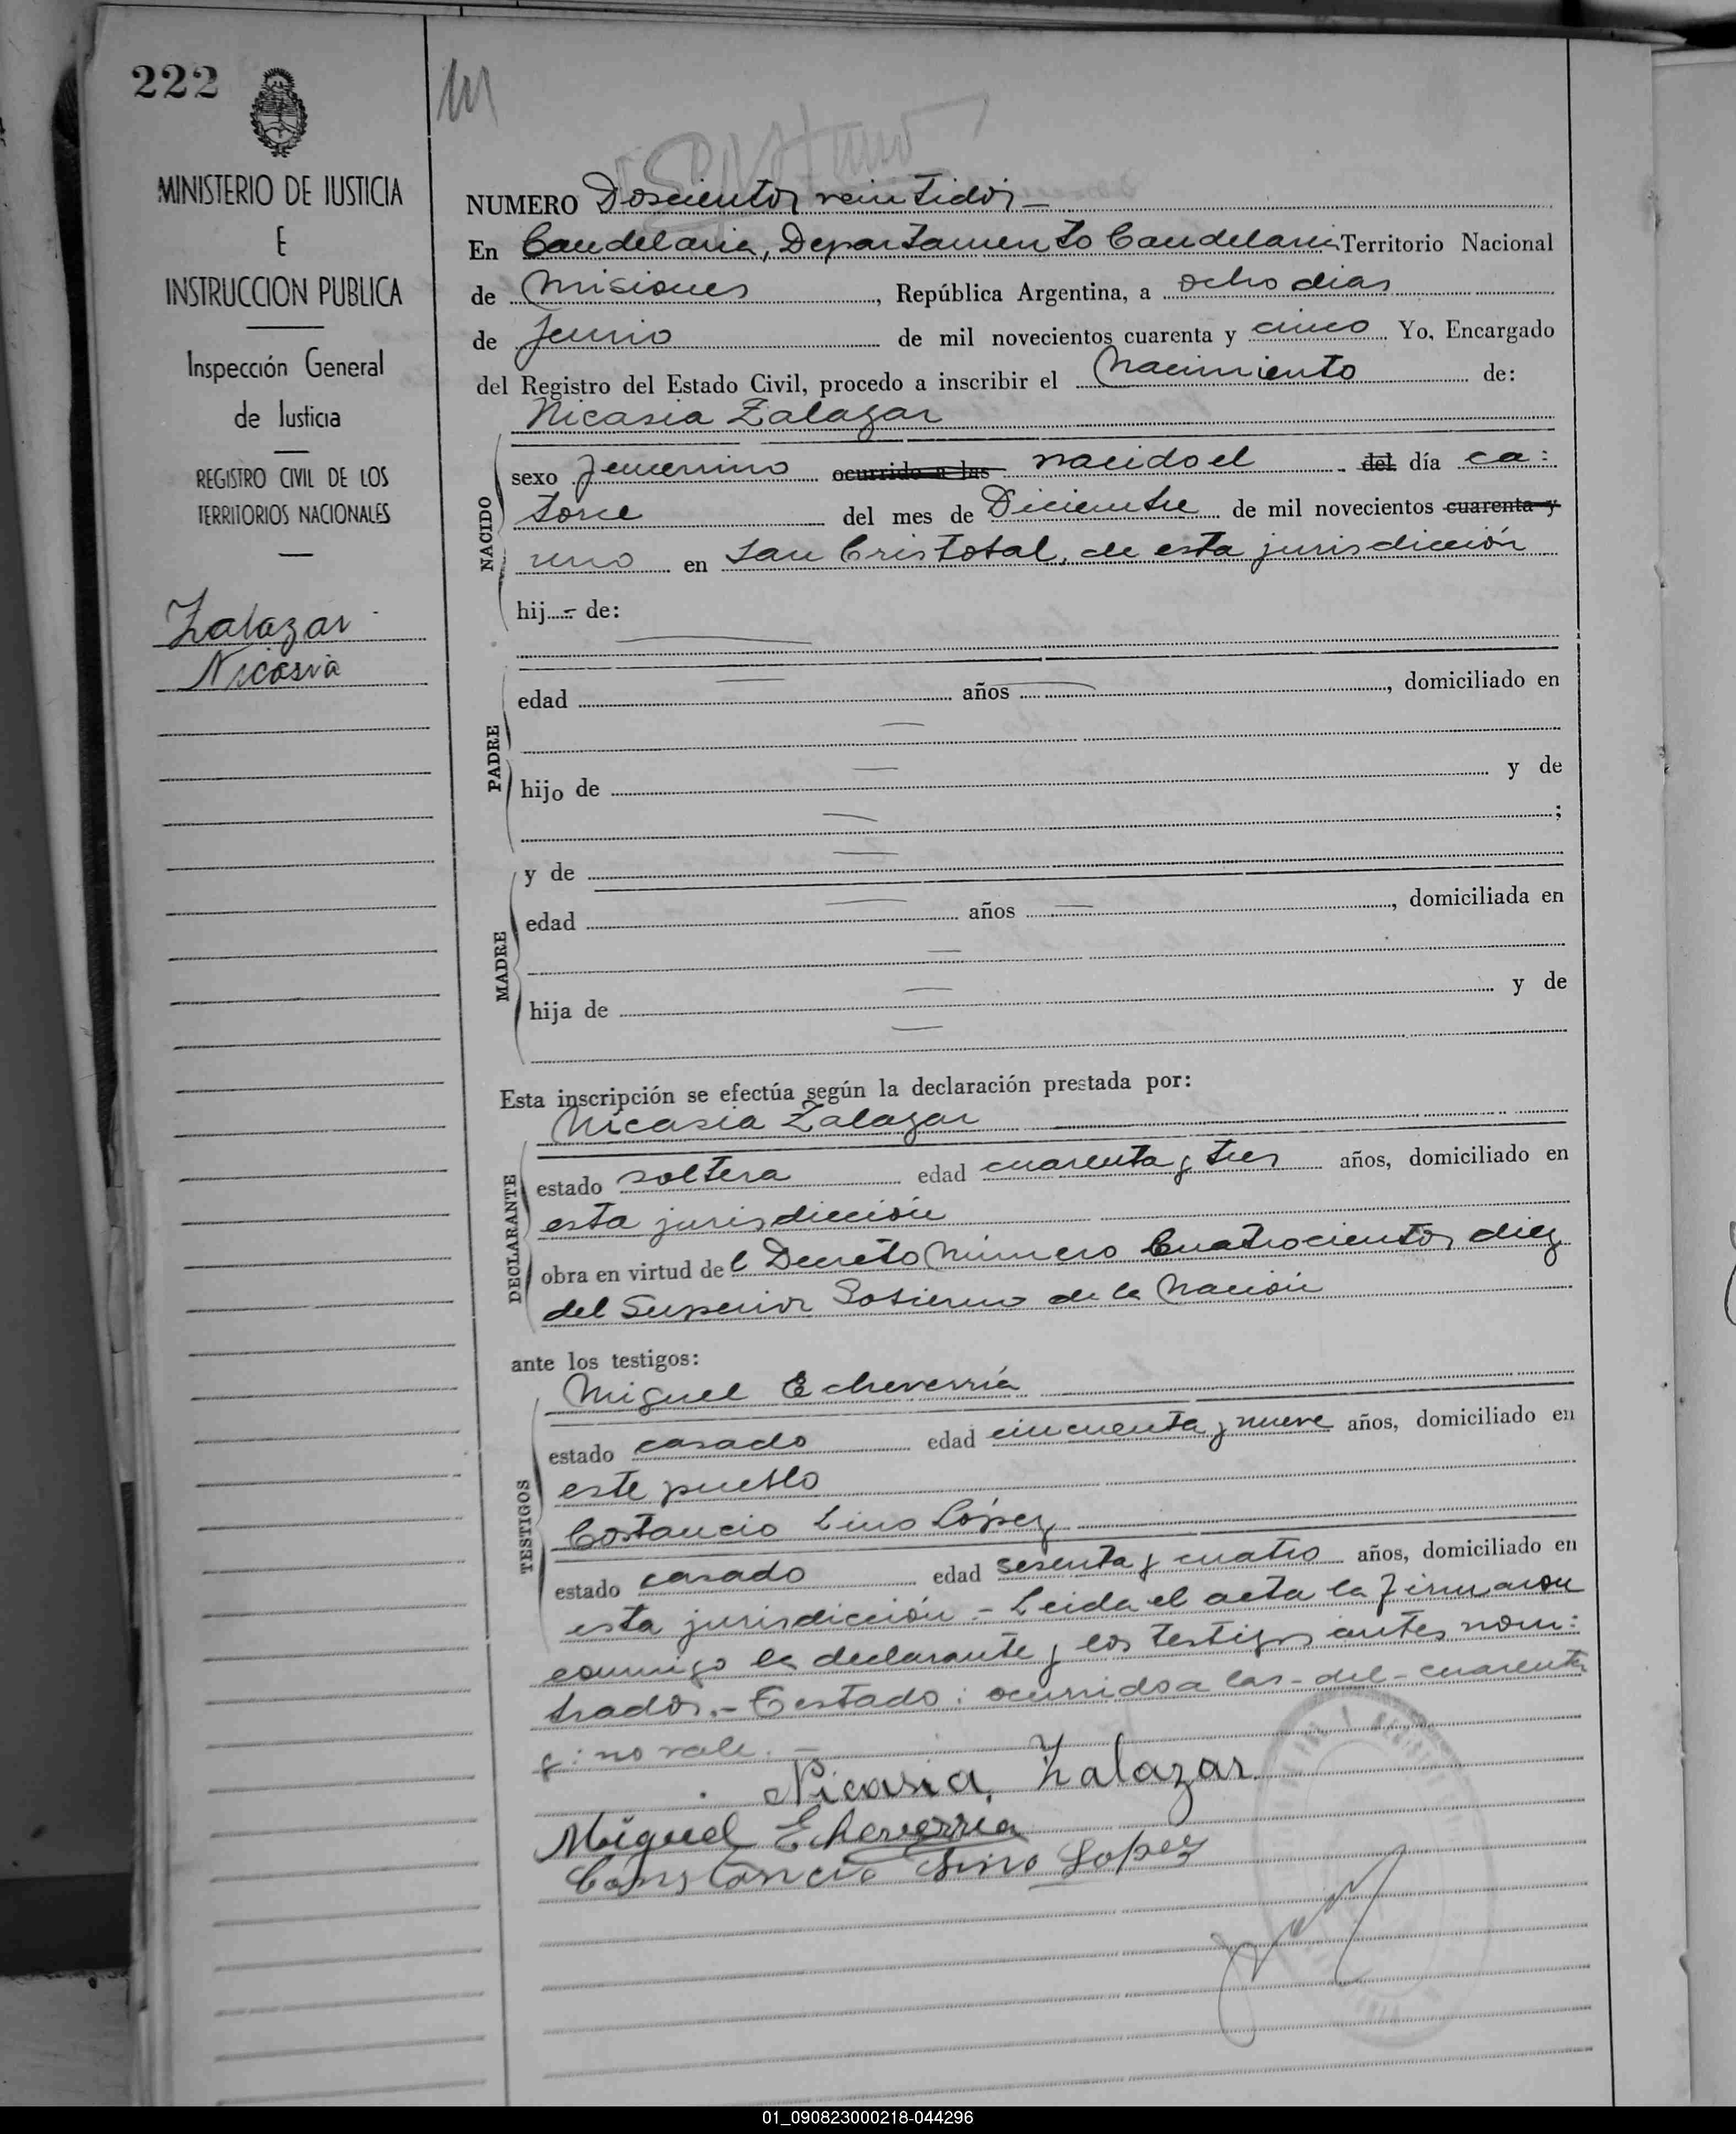 222
MINISTERIO DE JUSTICIA
E
INSTRUCCION PUBLICA
Inspección General
de Justicia
REGISTRO CIVIL DE LOS
TERRITORIOS NACIONALES
Zalazar
Nicasia
NUMERO Doscientos veintidós
En Candelaria, Departamento Candelaria Territorio Nacional
de Misiones, República Argentina, a ocho dias
de Junio de mil novecientos cuarenta y cinco Yo, Encargado
del Registro del Estado Civil, procedo a inscribir el Nacimiento de:
Nicasia Zalazar
NACIDO
sexo femenino ocurrido a las nacido el del día ca:
torce del mes de Diciembre de mil novecientos cuarenta y
uno en San Cristobal, de esta jurisdicción
hij de:
PADRE
edad años , domiciliado en
hijo de y de
;
MADRE
y de
edad años , domiciliada en
hija de y de
Esta inscripción se efectúa según la declaración prestada por:
Nicasia Zalazar
DECLARANTE
estado soltera edad cuarenta y tres años, domiciliado en
esta jurisdicción
obra en virtud de l Decreto Número Cuatrocientos diez
del Superior Gobierno de la Nación
ante los testigos:
TESTIGOS
Miguel Echeverría
estado casado edad cincuenta y nueve años, domiciliado en
este pueblo
Costancio Lino López
estado casado edad sesenta y cuatro años, domiciliado en
esta jurisdicción.- Leida el acta la firmaron
conmigo la declarante y los testigos antes nom:
brados.- Testado: ocurrido a las - del - cuarenta
y: no vale.-
Nicasia, Zalazar
Miguel Echeverria
Constancio Lino Lopez
01_090823000218-044296